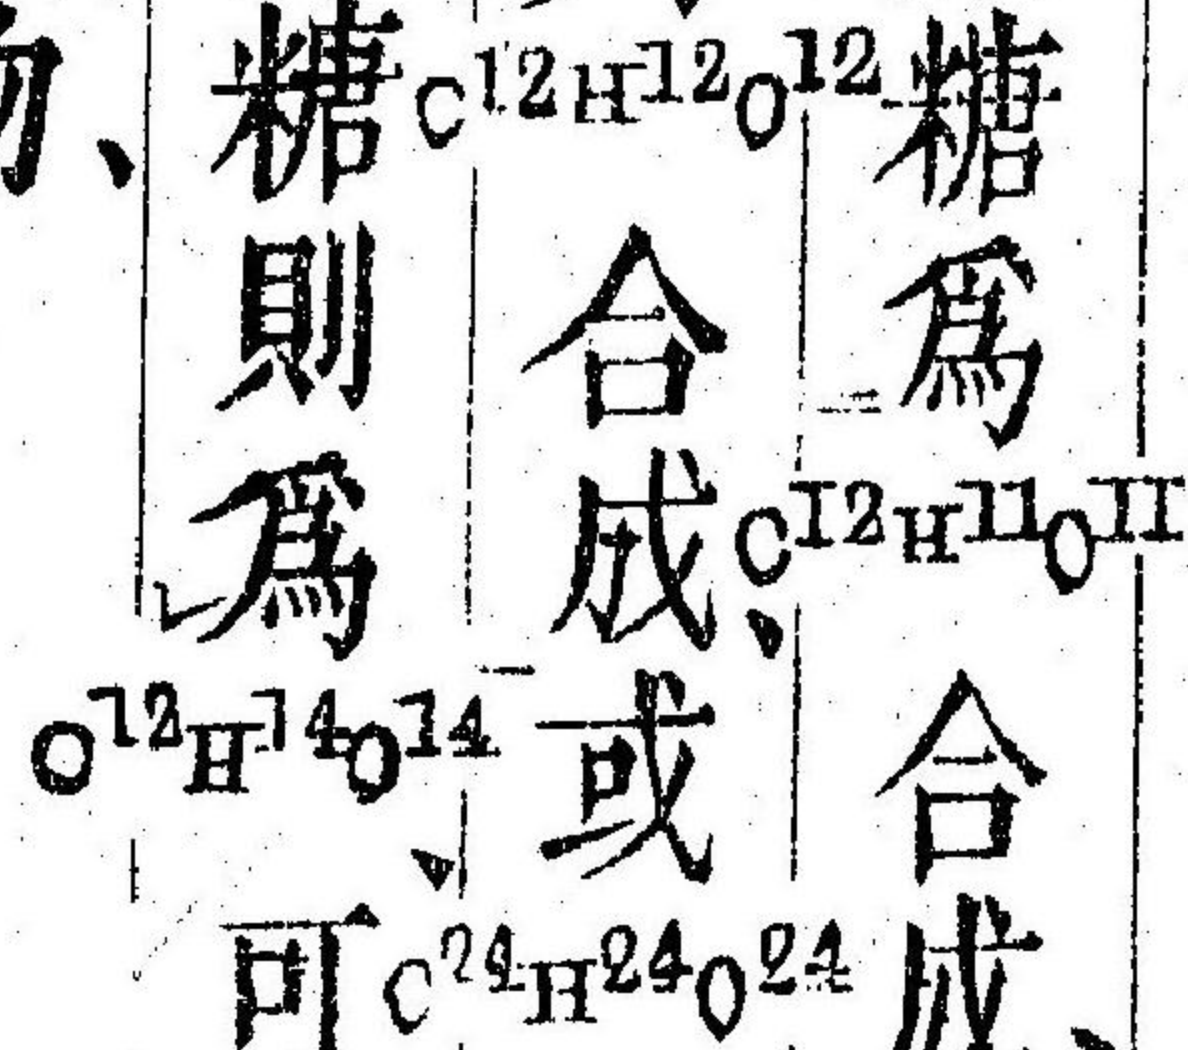 糖爲C¹²H¹¹O¹¹合成、
C¹²H¹²O¹²合成、或C²⁴H²⁴O²⁴
糖則爲O¹²H¹⁴O¹⁴、可
、